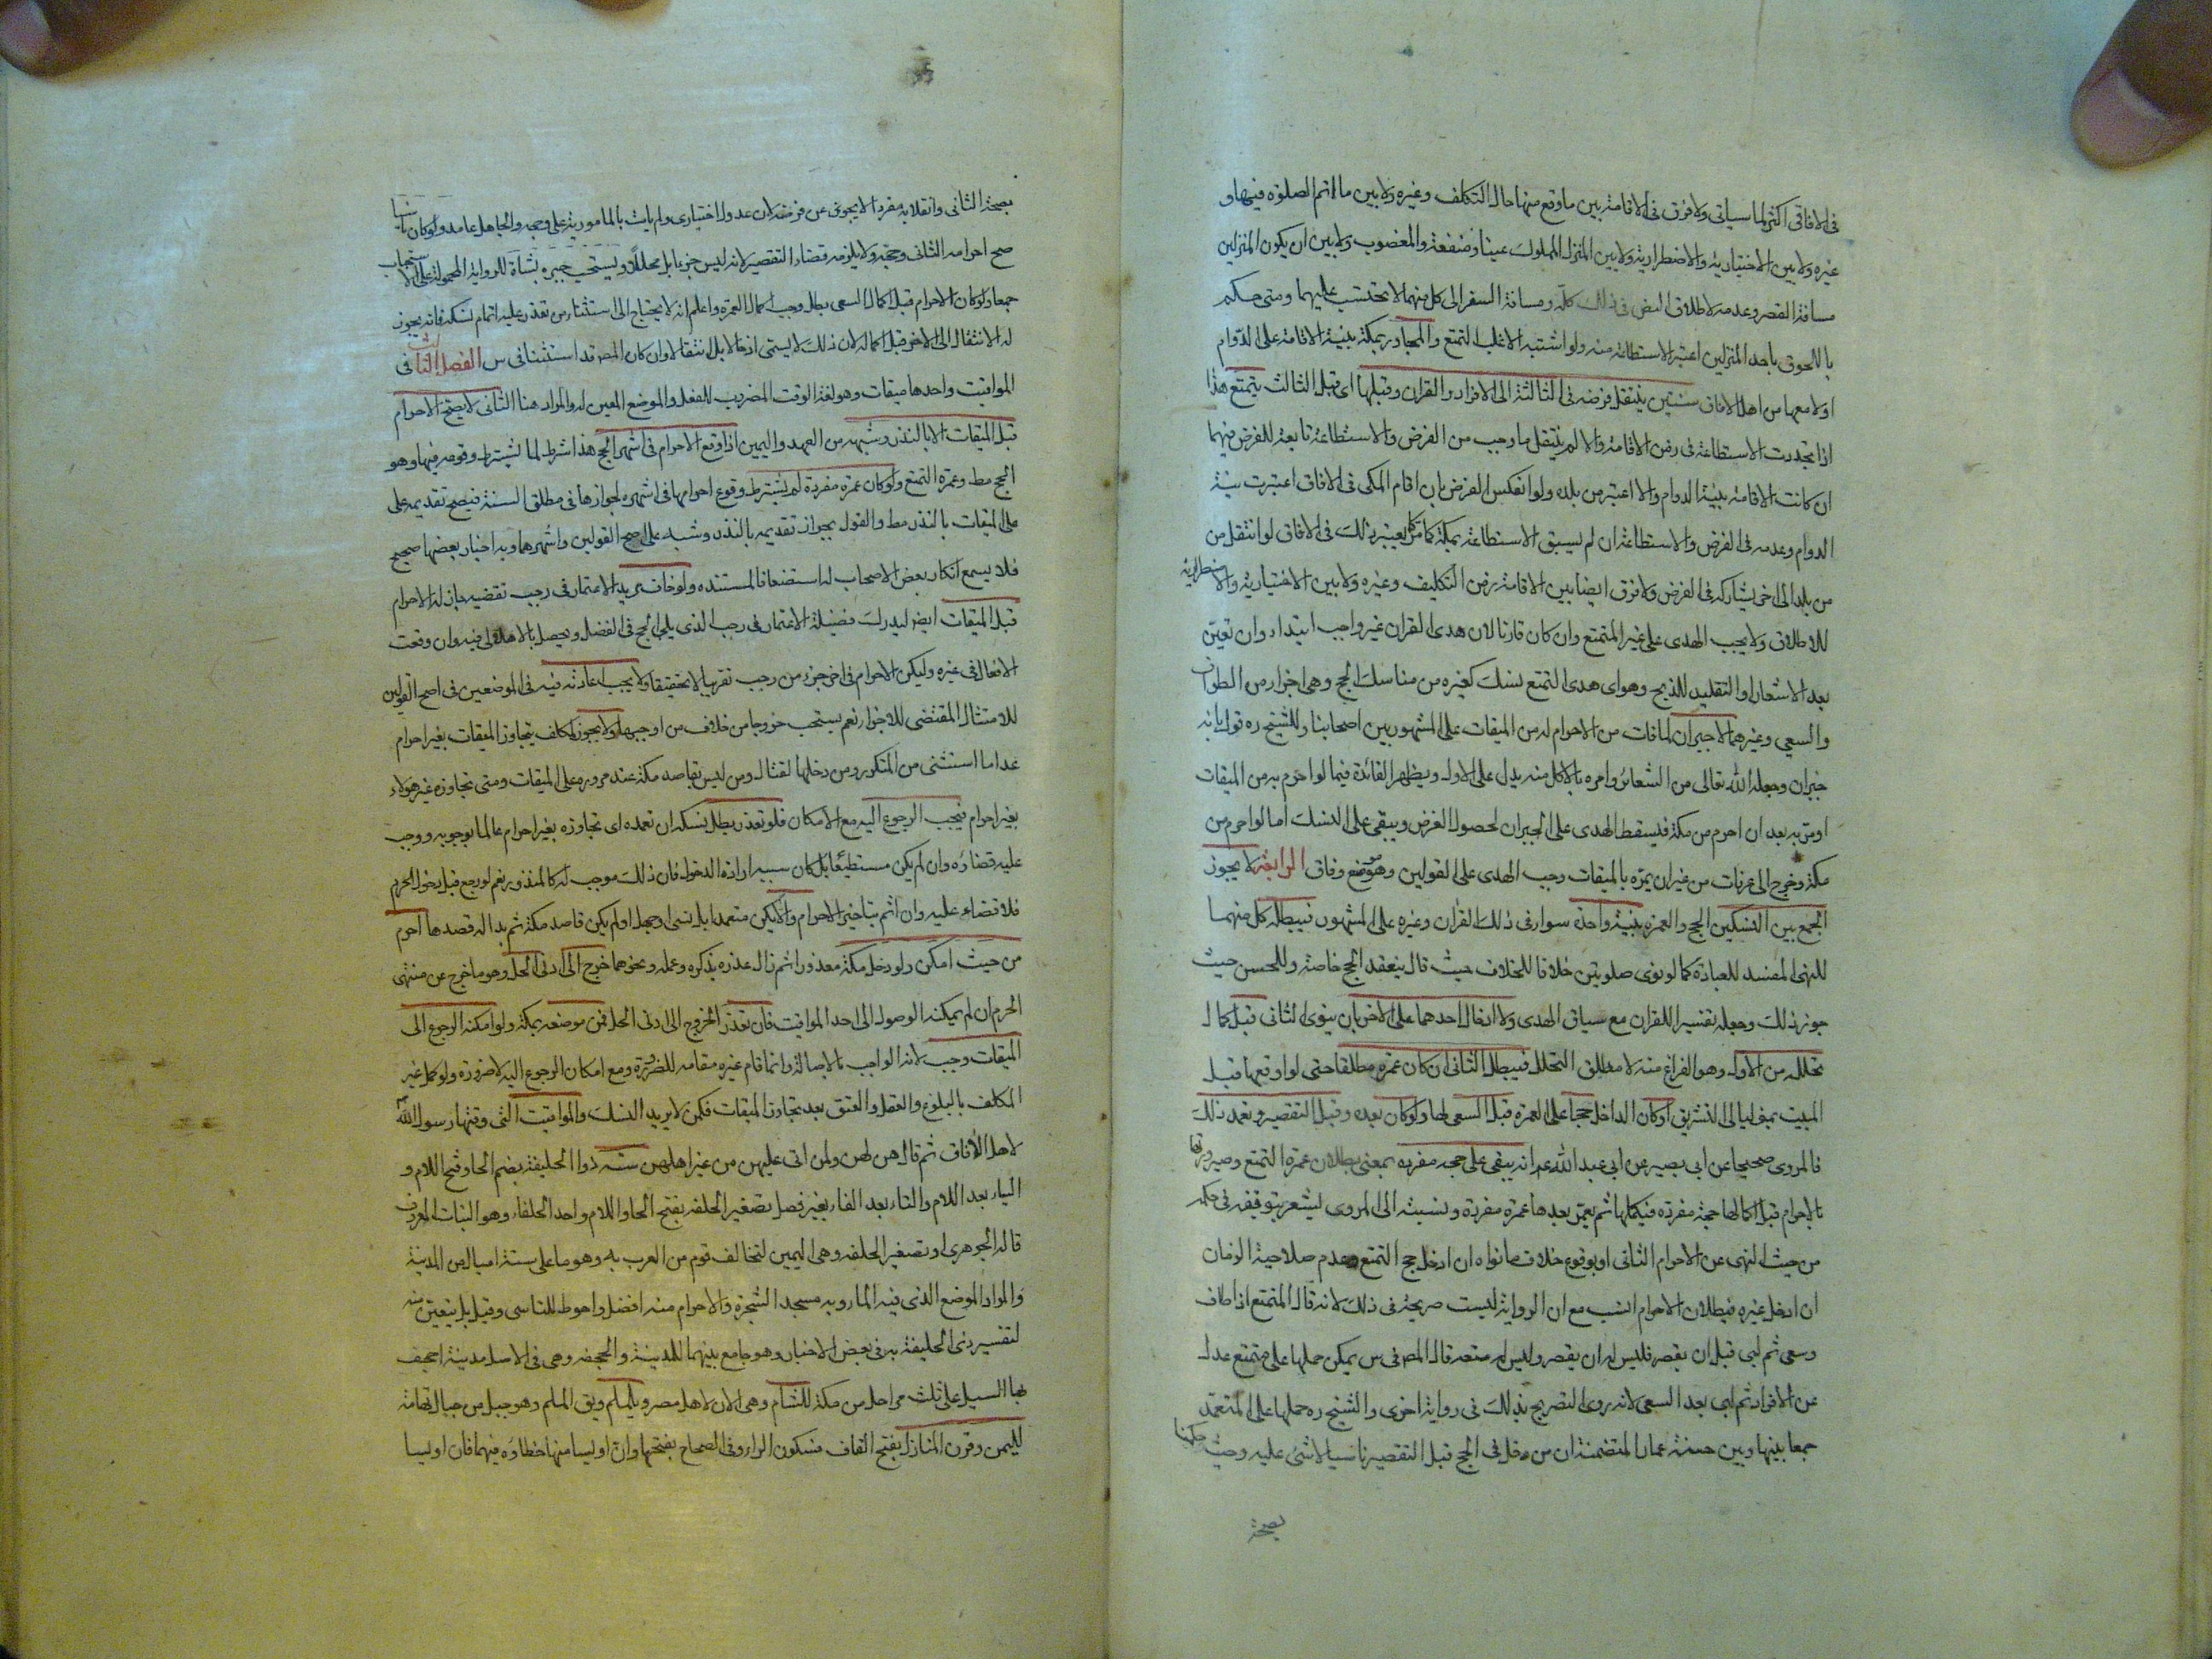 فى الافاقى اكثر لما سياتى ولا فرق فى الاقامة بين ما وقع منها حال التكلف وغيره ولا بين ما اتم الصلوة فيها و
غيره ولا بين الاختيارية والاضطرارية ولا بين المنزل المملوك عينا ومنفعة والمغصوب ولا بين ان يكون المنزلين
مسافة القصر وعدمه لاطلاق النص فى ذلك كله ومسافة السفر الى كل منهما لا يحتسب عليهما ومتى حكم
باللحوق باحد المنزلين اعتبر الاستطاعة منه ولو اشتبه الاغلب التمتع والمجاور بمكة بنية الاقامة على الدوام
اولا معها من اهل الافاق سنتين ينتقل فرضه فى الثالثة الى الافراد والقران وقبلها اى قبل الثالث يتمتع هذا
اذا تجددت الاستطاعة فى زمن الاقامة والا لم ينتقل ما وجب من الفرض والاستطاعة تابعة للفرض فيهما
ان كانت الاقامة بنية الدوام والا اعتبر من بلده ولو انعكس الفرض بان اقام المكى فى الافاق اعتبرت نية
الدوام وعدمه فى الفرض والاستطاعة ان لم يسبق الاستطاعة بمكة كما مر كما يعتبر ذلك فى الافاق لو انتقل من
من بلد الى اخر يشاركه فى الفرض ولا فرق ايضا بين الاقامة زمن التكليف وغيره ولا بين الاختيارية والاضطرارية
للاطلاق ولا يجب الهدى على غير المتمتع وان كان قارنا لان هدى القران غير واجب ابتداء وان تعين
بعد الاشعار او التقليد للذبح وهو اى هدى التمتع نسك كغيره من مناسك الحج وهى اجزاء من الطواف
والسعي وغيرهما لا جبران لما فات من الاحرام له من الميقات على المشهور بين اصحابنا وللشيخ ره قول بانه
جبران وجعله الله تعالى من الشعائر وامره بالاكل منه يدل على الاول ويظهر الفائدة فيما لو احرم به من الميقات
او مر به بعد ان احرم من مكة فيسقط الهدى على الجبران لحصول الغرض ويبقى على النسك اما لو احرم من
مكة وخرج الى عرفات من غير ان يمر بالميقات وجب الهدى على القولين وهو موضع وفاق الرابعة لا يجوز
الجمع بين النسكين الحج والعمرة بنية واحدة سواء فى ذلك القران وغيره على المشهور فيبطل كل منهما
للنهى المفسد للعبادة كما لو نوى صلوتين خلافا للخلاف حيث قال ينعقد الحج خاصة وللحسن حيث
جوز ذلك وجعله تفسيرا للقران مع سياق الهدى ولا ادخال احدهما على الاخر بان ينوى الثانى قبل اكمال
تحلله من الاول وهو الفراغ منه لا مطلق التحلل فيبطل الثانى ان كان عمرة مطلقا حتى لو اوقعها قبل
المبيت بمنى ليالى التشريق او كان الداخل حجا على العمرة قبل السعى لها ولو كان بعده وقبل التقصير وتعمد ذلك
فالمروى صحيحا عن ابى بصير عن ابى عبد الله ع انه يبقى على حجه مفردة بمعنى بطلان عمرة التمتع وصيرورتها
بالاحرام قبل اكمالها حجة مفردة فيكملها ثم يعتمر بعدها عمرة مفردة ونسبته الى المروى يشعر بتوقفه فى حكمه
من حيث النهى عن الاحرام الثانى او بوقوع خلاف ما نواه ان ادخل حج التمتع وعدم صلاحية الزمان
ان ادخل غيره فبطلان الاحرام انسب مع ان الرواية ليست صريحة فى ذلك لانه قال المتمتع اذا طاف
وسعى ثم لبى قبل ان يقصر فليس له ان يقصر وليس له متعة قال المص فى س يمكن حملها على متمتع عدل
عن الافراد ثم لبى بعد السعى لانه روى التصريح بذلك فى رواية اخرى والشيخ ره حملها على المتعمد
جمعا بينها وبين حسنة عمار المتضمنة ان من دخل فى الحج قبل التقصير ناسيا لا شئ عليه وحيث حكمنا
بصحة
بصحة الثانى وانقلابه مفردا لا يجوزى عن فرضه لان عدول اختيارى ولم يات بالمامور به على وجهه والجاهل عامد ولو كان ناسيا
صح احرامه الثانى وحجه ولا يلزمه قضاء التقصير لانه ليس جزءا بل محللا ويستحب جبره بشاة للرواية المحمولة على الاستحباب
جمعا ولو كان الاحرام قبل اكمال السعى بطل وجب اكمال العمرة واعلم انه لا يحتاج الى استثناء من تعذر عليه اتمام نسكه فانه يجوز
له الانتقال الى الاخر قبل اكماله لان ذلك لا يسمى ادخالا بل انتقالا وان كان المص قد استثناه فى س الفصل الثالث فى
المواقيت واحدها ميقات وهو لغة الوقت المضروب للفعل والموضع المعين له والمراد هنا الثانى لا يصح الاحرام
قبل الميقات الا بالنذر وشبهه من العهد واليمين اذا وقع الاحرام فى اشهر الحج هذا شرط لما يشترط وقوعه فيها وهو
الحج مط وعمرة التمتع ولو كان عمرة مفردة لم يشترط وقوع احرامها فى اشهره لجوازها فى مطلق السنة فيصح تقديمه على
على الميقات بالنذر مط والقول بجواز تقديمه بالنذر وشبهه على اصح القولين واشهرهما وبه اخبار بعضها صحيح
فلا يسمع انكار بعض الاصحاب له استضعافا لمستنده ولو خاف مريد الاعتمار فى رجب تقضيه جاز له الاحرام
قبل الميقات ايضا ليدرك فضيلة الاعتمار فى رجب الذى يلى الحج فى الفضل ويحصل بالاهلال فيه وان وقعت
الافعال فى غيره وليكن الاحرام فى اخر جزء من رجب تقريبا لا تحقيقا ولا يجب اعادته فيه فى الموضعين فى اصح القولين
للامتثال المقتضى للاجزاء نعم يستحب خروجا من خلاف من اوجبها ولا يجوز لمكلف يتجاوز الميقات بغير احرام
عدا ما استثنى من المتكرر ومن دخلها لقتال ومن ليس بقاصد مكة عند مروره على الميقات ومتى تجاوزه غير هؤلاء
بغير احرام فيجب الرجوع اليه مع الامكان فلو تعذر بطل نسكه ان تعمده اى تجاوزه بغير احرام عالما بوجوبه ووجب
عليه قضاؤه وان لم يكن مستطيعا بل كان سببه ارادة الدخول فان ذلك موجب له كالمنذور نعم لو رجع قبل دخول الحرم
فلا قضاء عليه وان اثم بتاخير الاحرام والا يكن متعمدا بل نسى او جهل او لم يكن قاصد مكة ثم بدا له قصدها احرم
من حيث امكن ولو دخل مكة معذورا ثم زال عذره بذكره وعلمه ونحوهما خرج الى ادنى الحل وهو ما خرج عن منتهى
الحرم ان لم يمكنه الوصول الى احد المواقيت فان تعذر الخروج الى ادنى الحل فمن موضعه بمكة ولو امكنه الرجوع الى
الميقات وجب لانه الواجب بالاصالة وانما قام غيره مقامه للضرورة ومع امكان الرجوع اليه لا ضرورة ولو كمل غير
المكلف بالبلوغ والعقل والعتق بعد تجاوز الميقات فكمن لا يريد النسك والمواقيت التى وقتها رسول الله
لاهل الافاق ثم قال هن لهن ولمن اتى عليهن من غير اهلهن ستة ذوا الحليفة بضم الحا وفتح اللام و
الياء بعد اللام والتاء بعد الفاء بغير فصل تصغير الحلفة بفتح الحا واللام واحد الحلفاء وهو النبات المعروف
قاله الجوهرى او تصغير الحلفه وهى اليمين لتحالف قوم من العرب به وهو ما على ستة اميال من المدينة
والمراد الموضع الذى فيه الماء وبه مسجد الشجرة والاحرام منه افضل واحوط للتاسى وقيل بل يتعين منه
لتفسير ذى الحليفة به فى بعض الاخبار وهو جامع بينهما للمدينة والجحفه وهى فى الاصل مدينة اجحف
بها السيل على ثلث مراحل من مكة للشام وهى الان لاهل مصر ويلملم ويق الملم وهو جبل من جبال تهامة
لليمن وقرن المنازل بفتح القاف فسكون الراء وفى الصحاح بفتحها وان اويسا منها خطاؤه فيهما فان اويسا